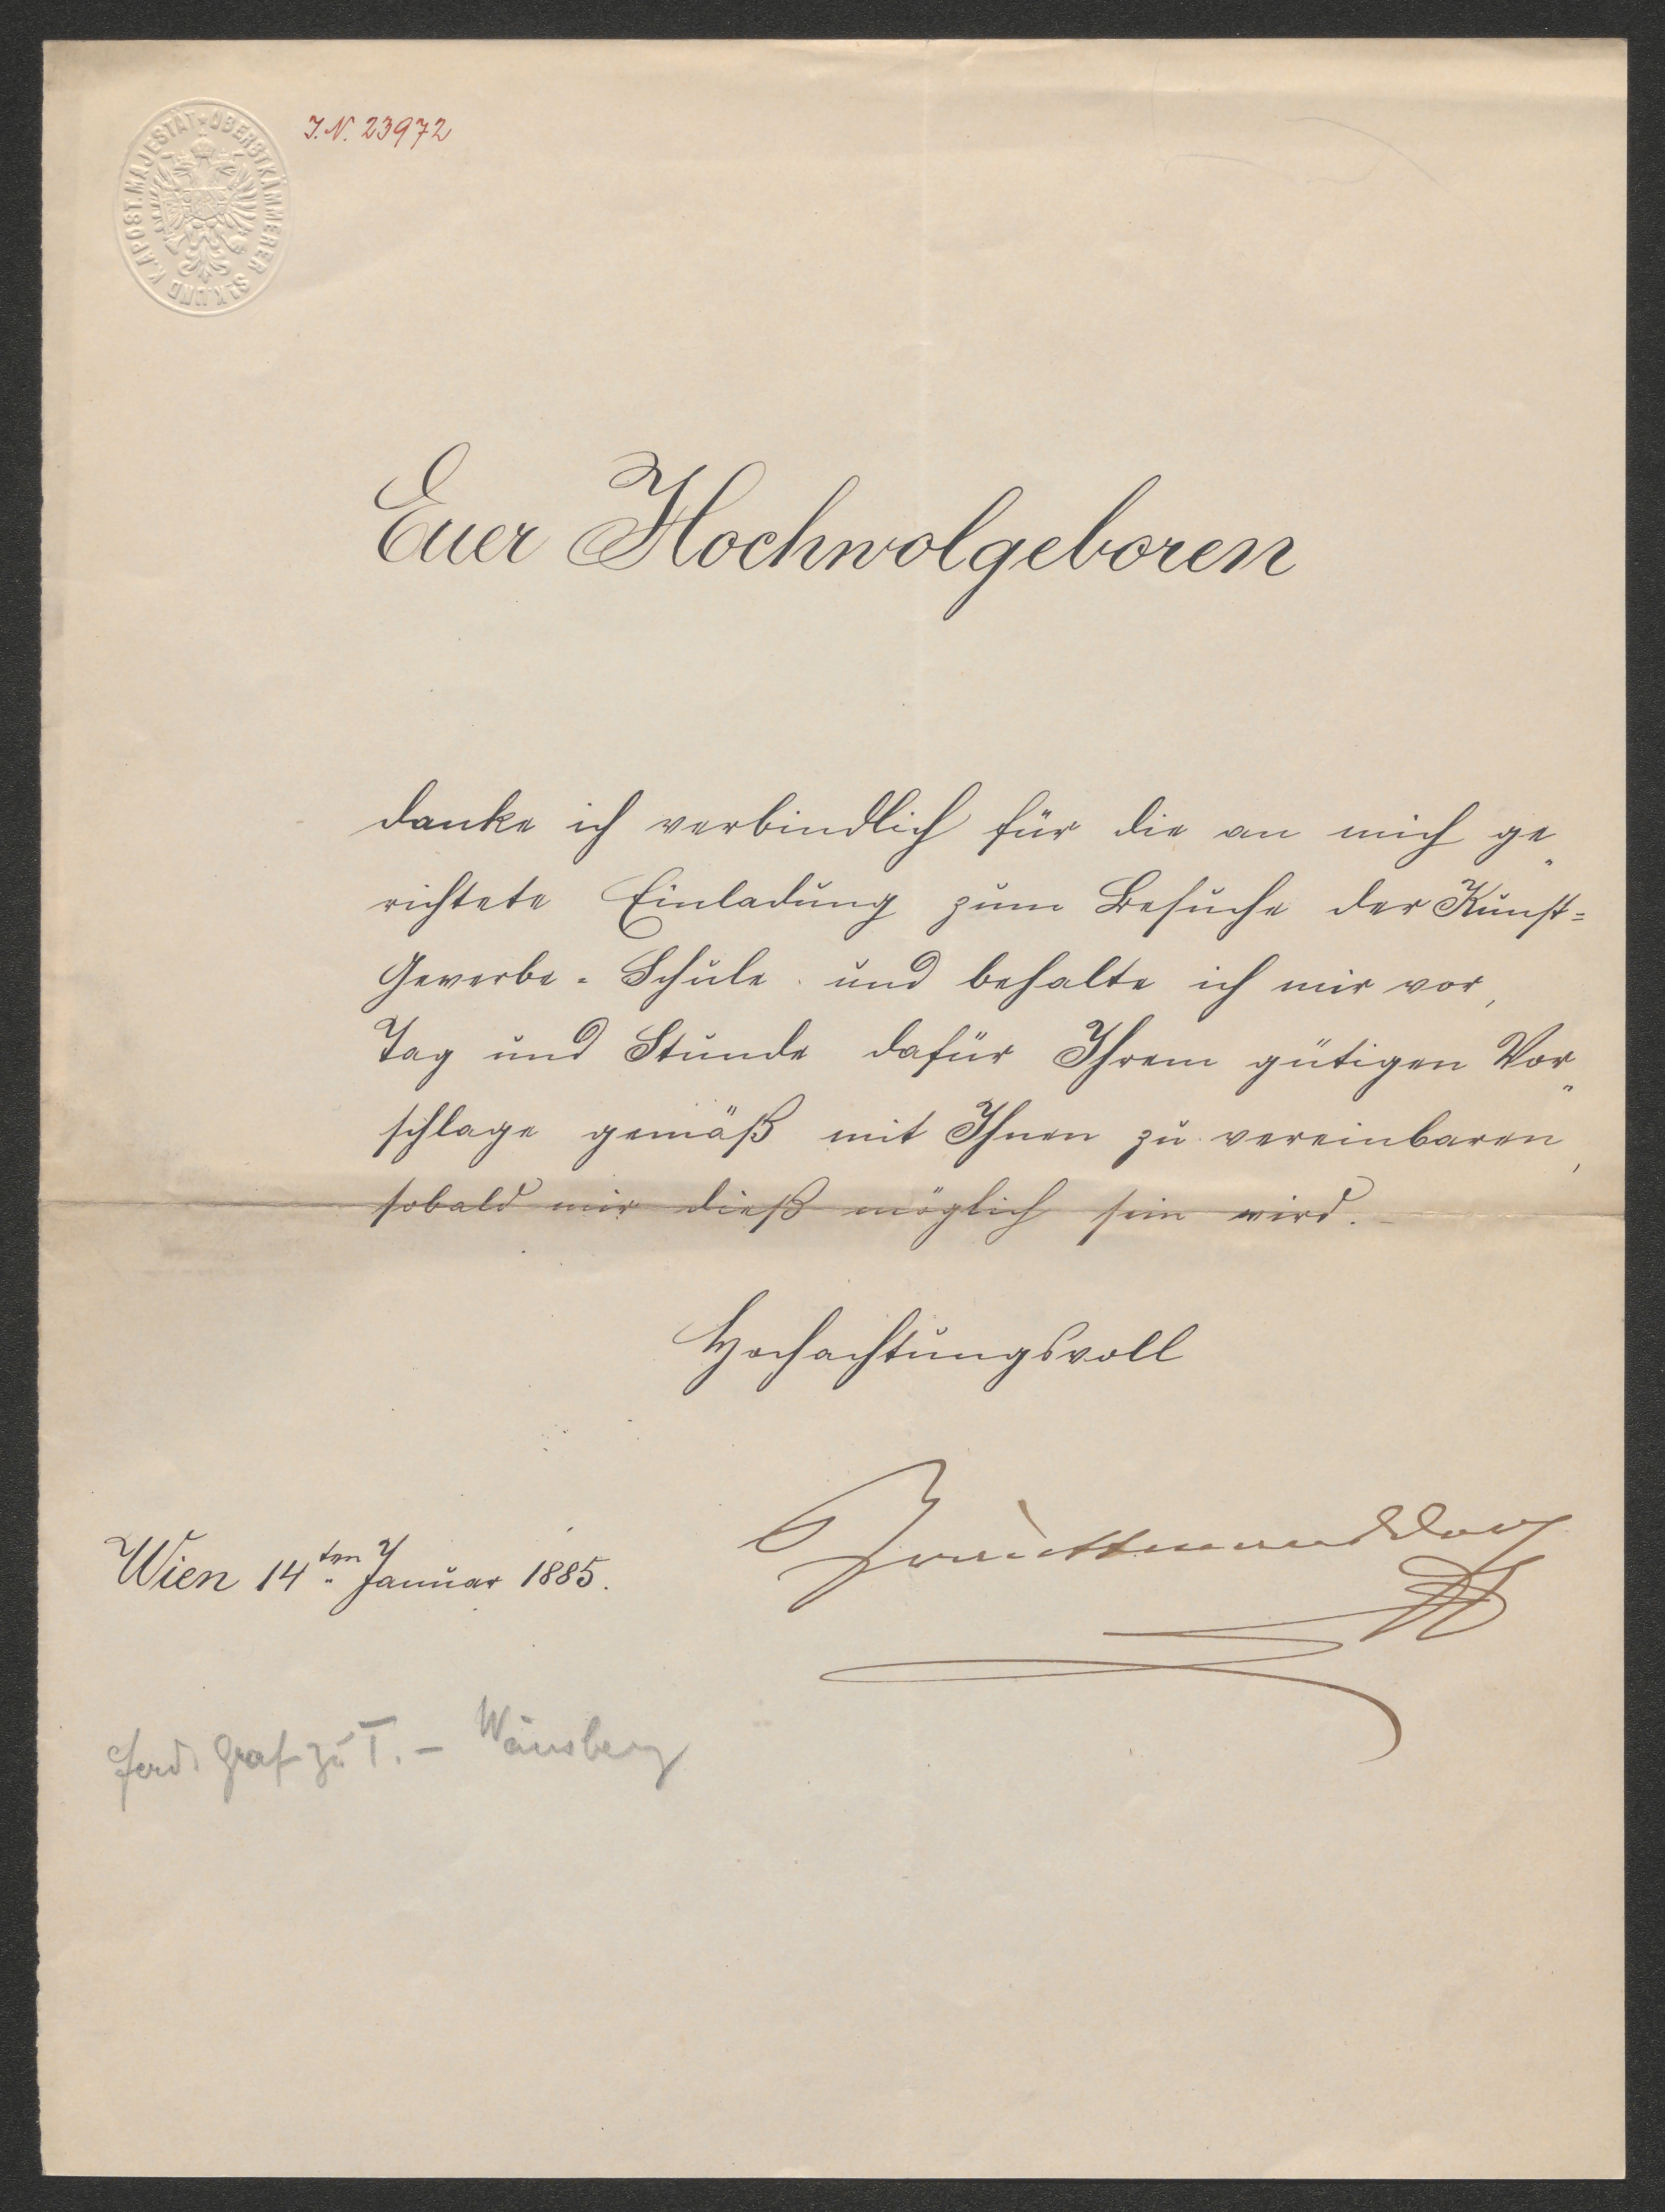 OBERSTKÄMMERER Sr. K. UND K. APOST. MAJESTÄT
I.N. 23972
Euer Hochwolgeboren
danke ich verbindlich für die an mich ge„
richtete Einladung zum Besuche der Kunst=
Gewerbe-Schule und behalte ich mir vor,
Tag und Stunde dafür Ihrem gütigen Vor„
schlage gemäß mit Ihnen zu vereinbaren,
sobald mir dieß möglich sein wird.
Hochachtungsvoll
Trauttmansdorff
Wien 14ten Januar 1885.
Ferd. Graf zu T. - Weinsberg